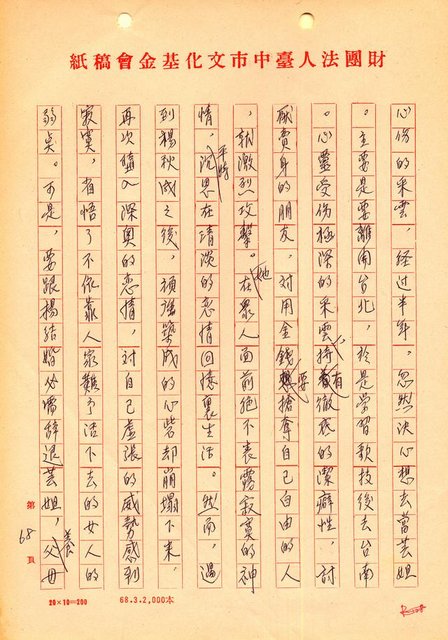 財團法人臺中市文化基金會稿紙
心伤的采雲，经过半年，忽然决心想去當芸姐
。主要是要離闻台北，於是学習歌技後去台南
。心靈受伤極深的采雲，持有徹底的潔癖性，討
厭賣身的朋友，对用金錢要搶奪自己自由的人
，執激烈攻擊。她在眾人面前絕不表露寂寞的神
情，平時沉思在清淡的恋情回憶裏生活。然而，遇
到楊秋成之後，頑強築成的心砦却崩塌下来，
再次墮入深奥的恋情，对自己虛張的威勢感到
寂寞，省悟了不依靠人家難予活下去的女人的
弱点。可是，要跟楊结婚必需辞退芸姐，養父母
第 68 頁
20×10=200
68.3.2,000本